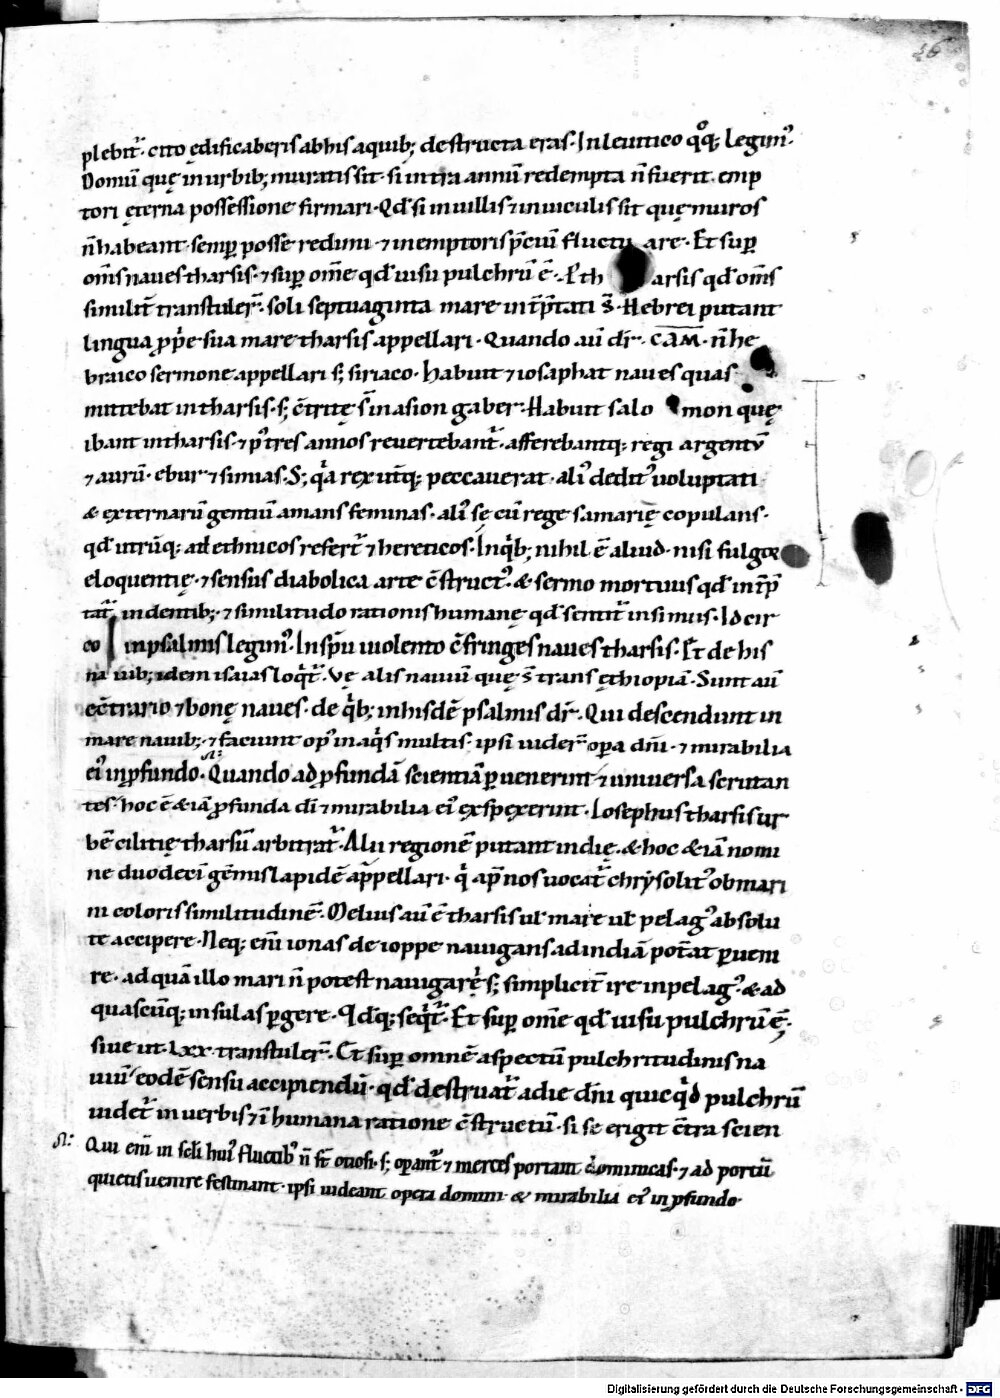 46
plebit᷑· cito ędificaberis ab his a quib; destructa eras· In leuitico qͦq; legim᷒·
Domū quę in urbib; muratis sit· si intra annū redempta n̄ fuerit· emp
tori ęterna possessione firmari· Qđ si in uillis ⁊ in uiculis sit quę muros
n̄ habeant· semp̱ posse redimi· ⁊ in emptoris p̄ciū fluctu are· Et sup̱
om̄s naues tharsis· ⁊ sup̱ om̄e qđ uisu pulchrū ē· P̱ th arsis qđ om̄s
similit̄ transtuler̄· soli septuaginta mare int̄p̄tati s̄· Hebrei putant
lingua ꝓp̱e sua mare tharsis appellari· Quando aū dr̄· CAM· n̄ he
braico sermone appellari s; siriaco· Habuit ⁊ iosaphat naues quas
mittebat in tharsis· s; c̄tritę s̄ in asion gaber· Habuit salo mon quę
ibant in tharsis· ⁊ p᷒ tres annos reuertebant᷑· afferebantq; regi argentū
⁊ aurū· ebur ⁊ simias· S; qͥa rex ut̄q; peccauerat· ali᷒ dedit᷒ uoluptati
& externarū gentiū amans feminas· ali᷒ se cū rege samarię copulans·
qđ utrūq; ad ethnicos refert᷑ ⁊ hereticos· In qͥb; nihil ē aliud· nisi fulgor
eloquentię· ⁊ sensus diabolica arte c̄struct᷒· & sermo mortuus qđ int̄p̄
tat᷑ in dentib; ⁊ similitudo rationis humanę qđ sentit᷑ in simus· Idcir
co in psalmis legim᷒· In sp̄u uiolento c̄fringes naues tharsis· Et de his
nauib; idem isaias loqͥt᷑· Vę alis nauiū quę s̄ trans ęthiopiā· Sunt aū
ec̄trario ⁊ bonę naues· de qͥb; in hisdē psalmis dr̄· Qui descendunt in
mare nauib; ⁊ faciunt op᷒ in aqͥs multis· ipsi uider̄ op̱a dn̄i· ⁊ mirabilia
ei᷒ in ꝓfundo· Quando ad ꝓfundā scientiā p̱uenerint ⁊ uniuersa scrutan
tes· hoc ē &iā ꝓfunda di ⁊ mirabilia ei᷒ exspexerunt· Iosephus tharsis ur
bē cilitię tharsū arbitrat᷑· Alii regionē putant indię· & hoc &iā nomi
ne duodecī gēmis lapidē appellari· qͥ ap̄ nos uocat᷑ chrysolit᷒ ob mari
ni coloris similitudinē· Melius aū ē tharsis ut mare ut pelag᷒ absolu
te accipere· Neq; enī ionas de ioppe nauigans ad indiā pot̄at p̱ueni
re· ad quā illo mari n̄ potest nauigarę· s; simplicit̄ ire in pelag᷒· & ad
quascūq; insulas p̱gere· Qđq; seqͥt᷑· Et sup̱ om̄e qđ uisu pulchrū ē·
siue ut· Lxx· transtuler̄· Et sup̱ omnē aspectū pulchritudinis na
uiū· eodē sensu accipiendū· qđ destruat᷑ a die dn̄i quicqͥd pulchrū
uidet᷑ in uerbis ⁊ ī humana ratione c̄structū· si se erigit c̄tra scien
Qui enī in sc̄li hui᷒ fluctib᷒ n̄ st̄ otiosi· s; op̱ant᷑ ⁊ merces portant dominicas· ⁊ ad portū
quietis uenire festinant· ipsi uideant opera domini & mirabilia ei᷒ in ꝓfundo·
Digitalisierung gefördert durch die Deutsche Forschungsgemeinschaft - DFG